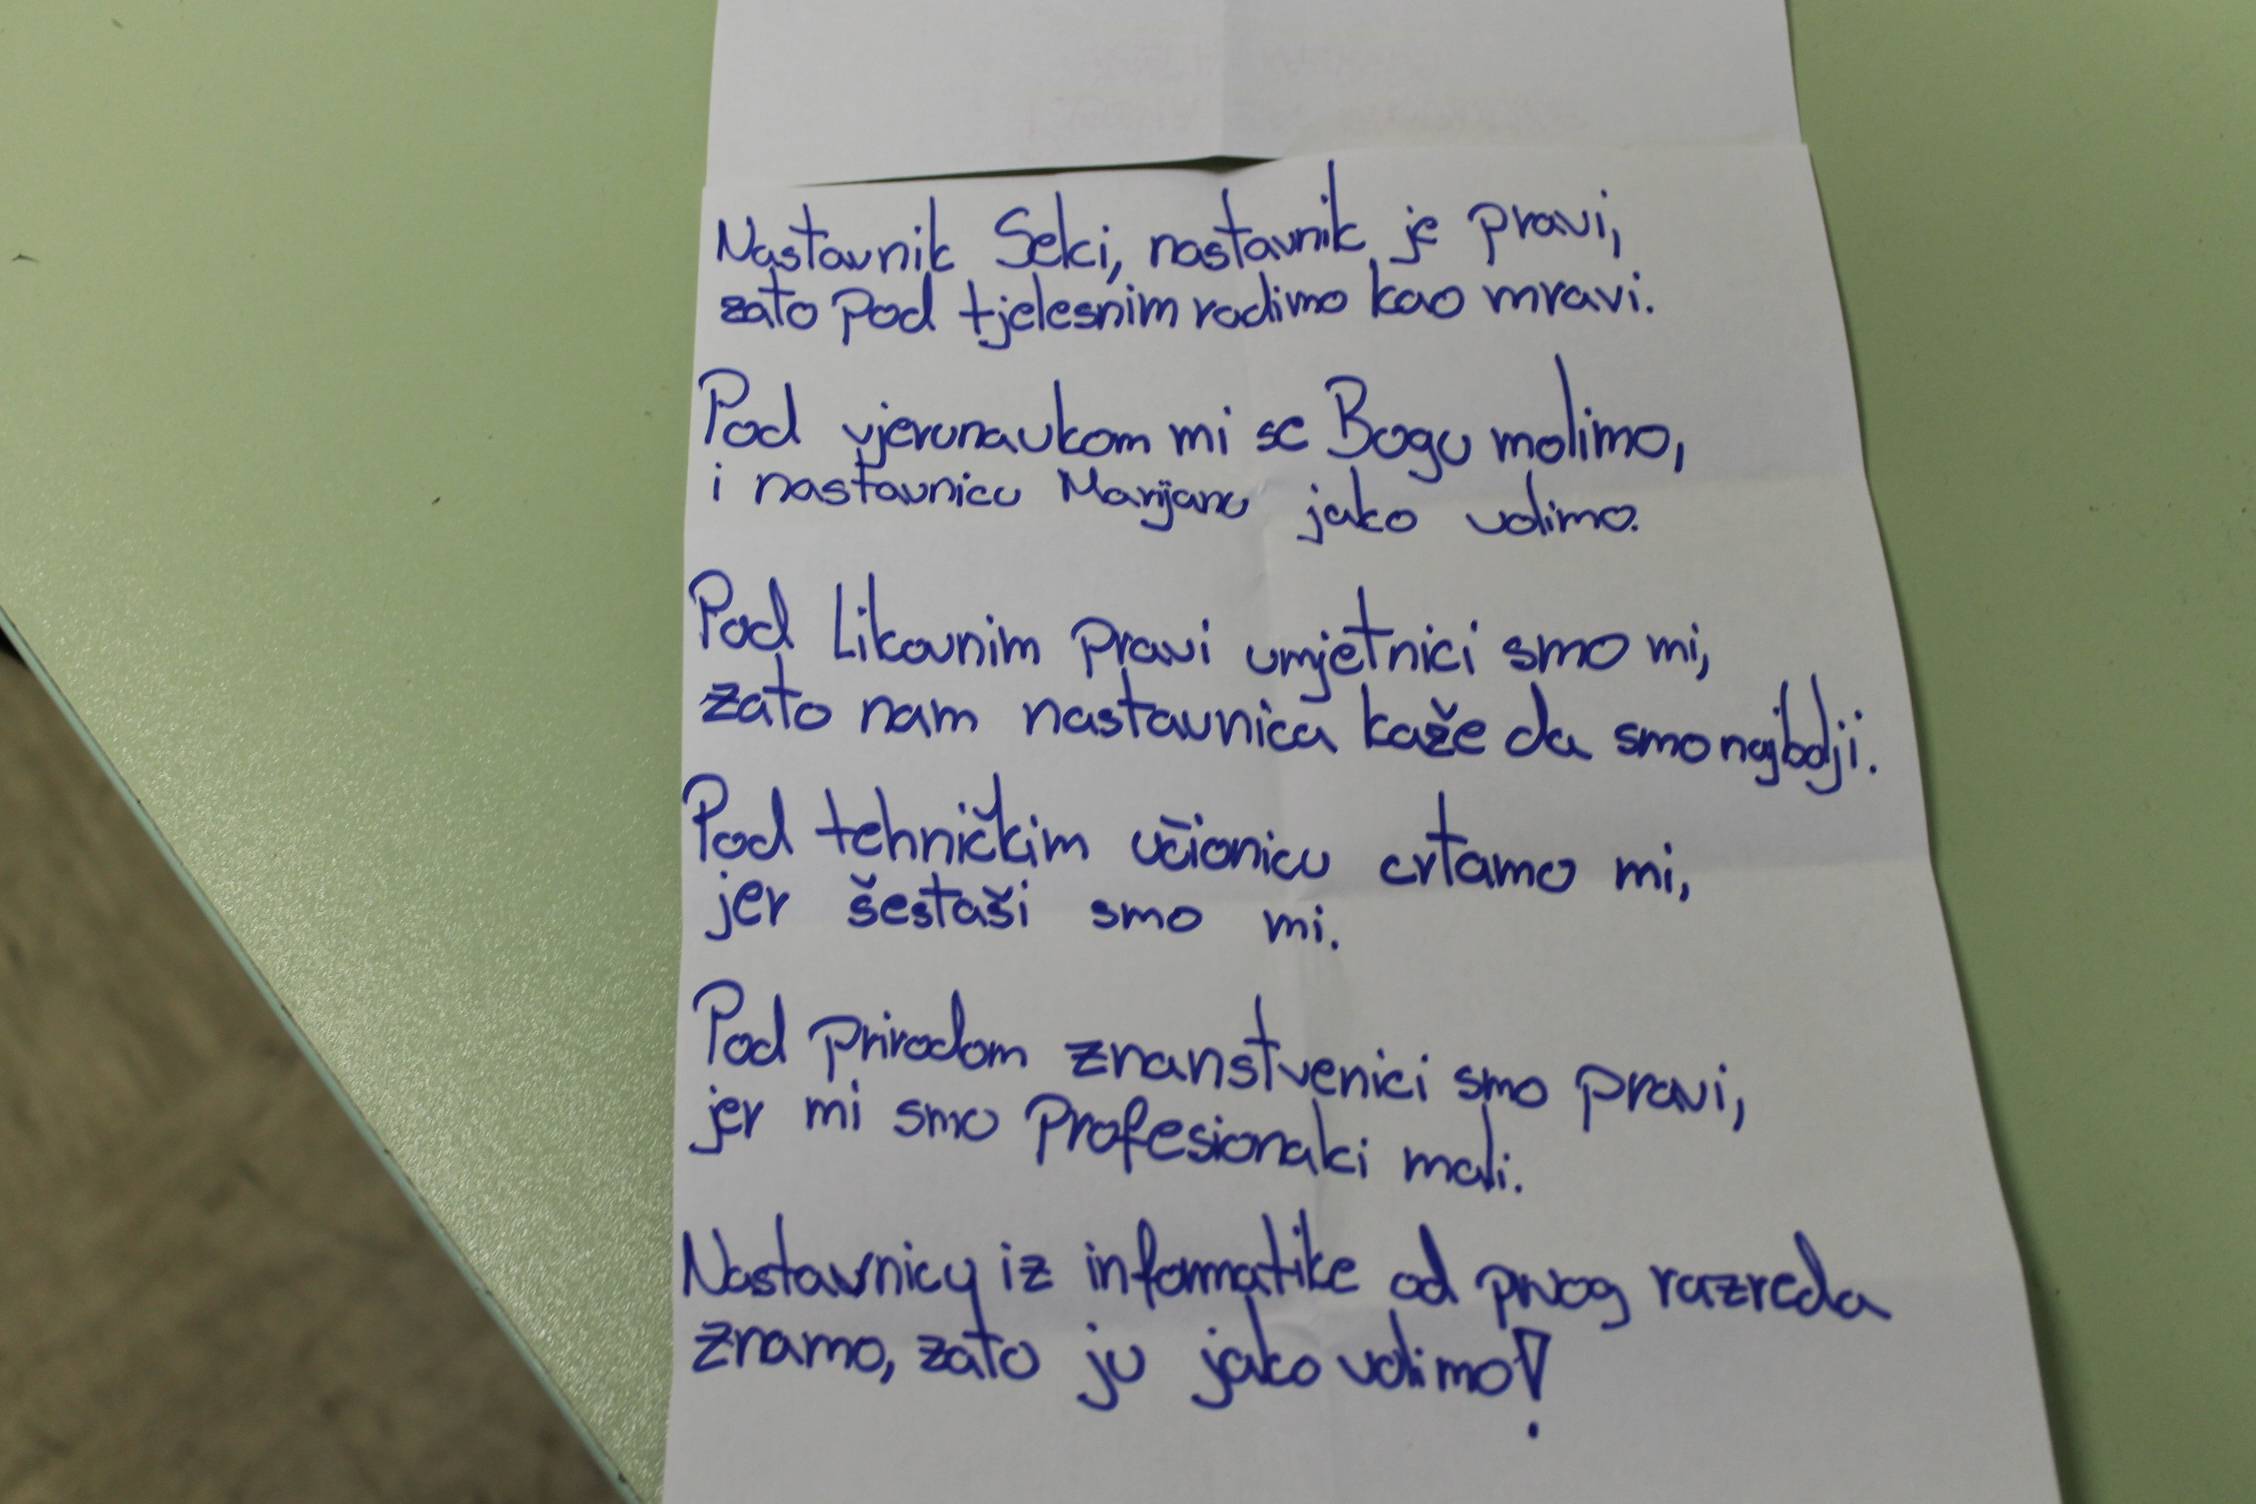 Nastavnik Seki, nastavnik je pravi,
zato pod tjelesnim radimo kao mravi.
Pod vjeronaukom mi se Bogu molimo,
i nastavnicu Marijanu jako volimo.
Pod Likovnim pravi umjetnici smo mi,
zato nam nastavnica kaže da smo najbolji.
Pod tehničkim učionicu crtamo mi,
jer šestaši smo mi.
Pod prirodom znanstvenici smo pravi,
jer mi smo profesionalci mali.
Nastavnicu iz informatike od prvog razreda
znamo, zato ju jako volimo!